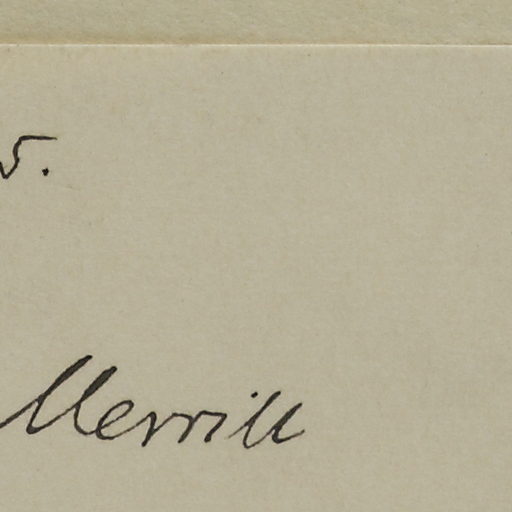 5.
Merrill